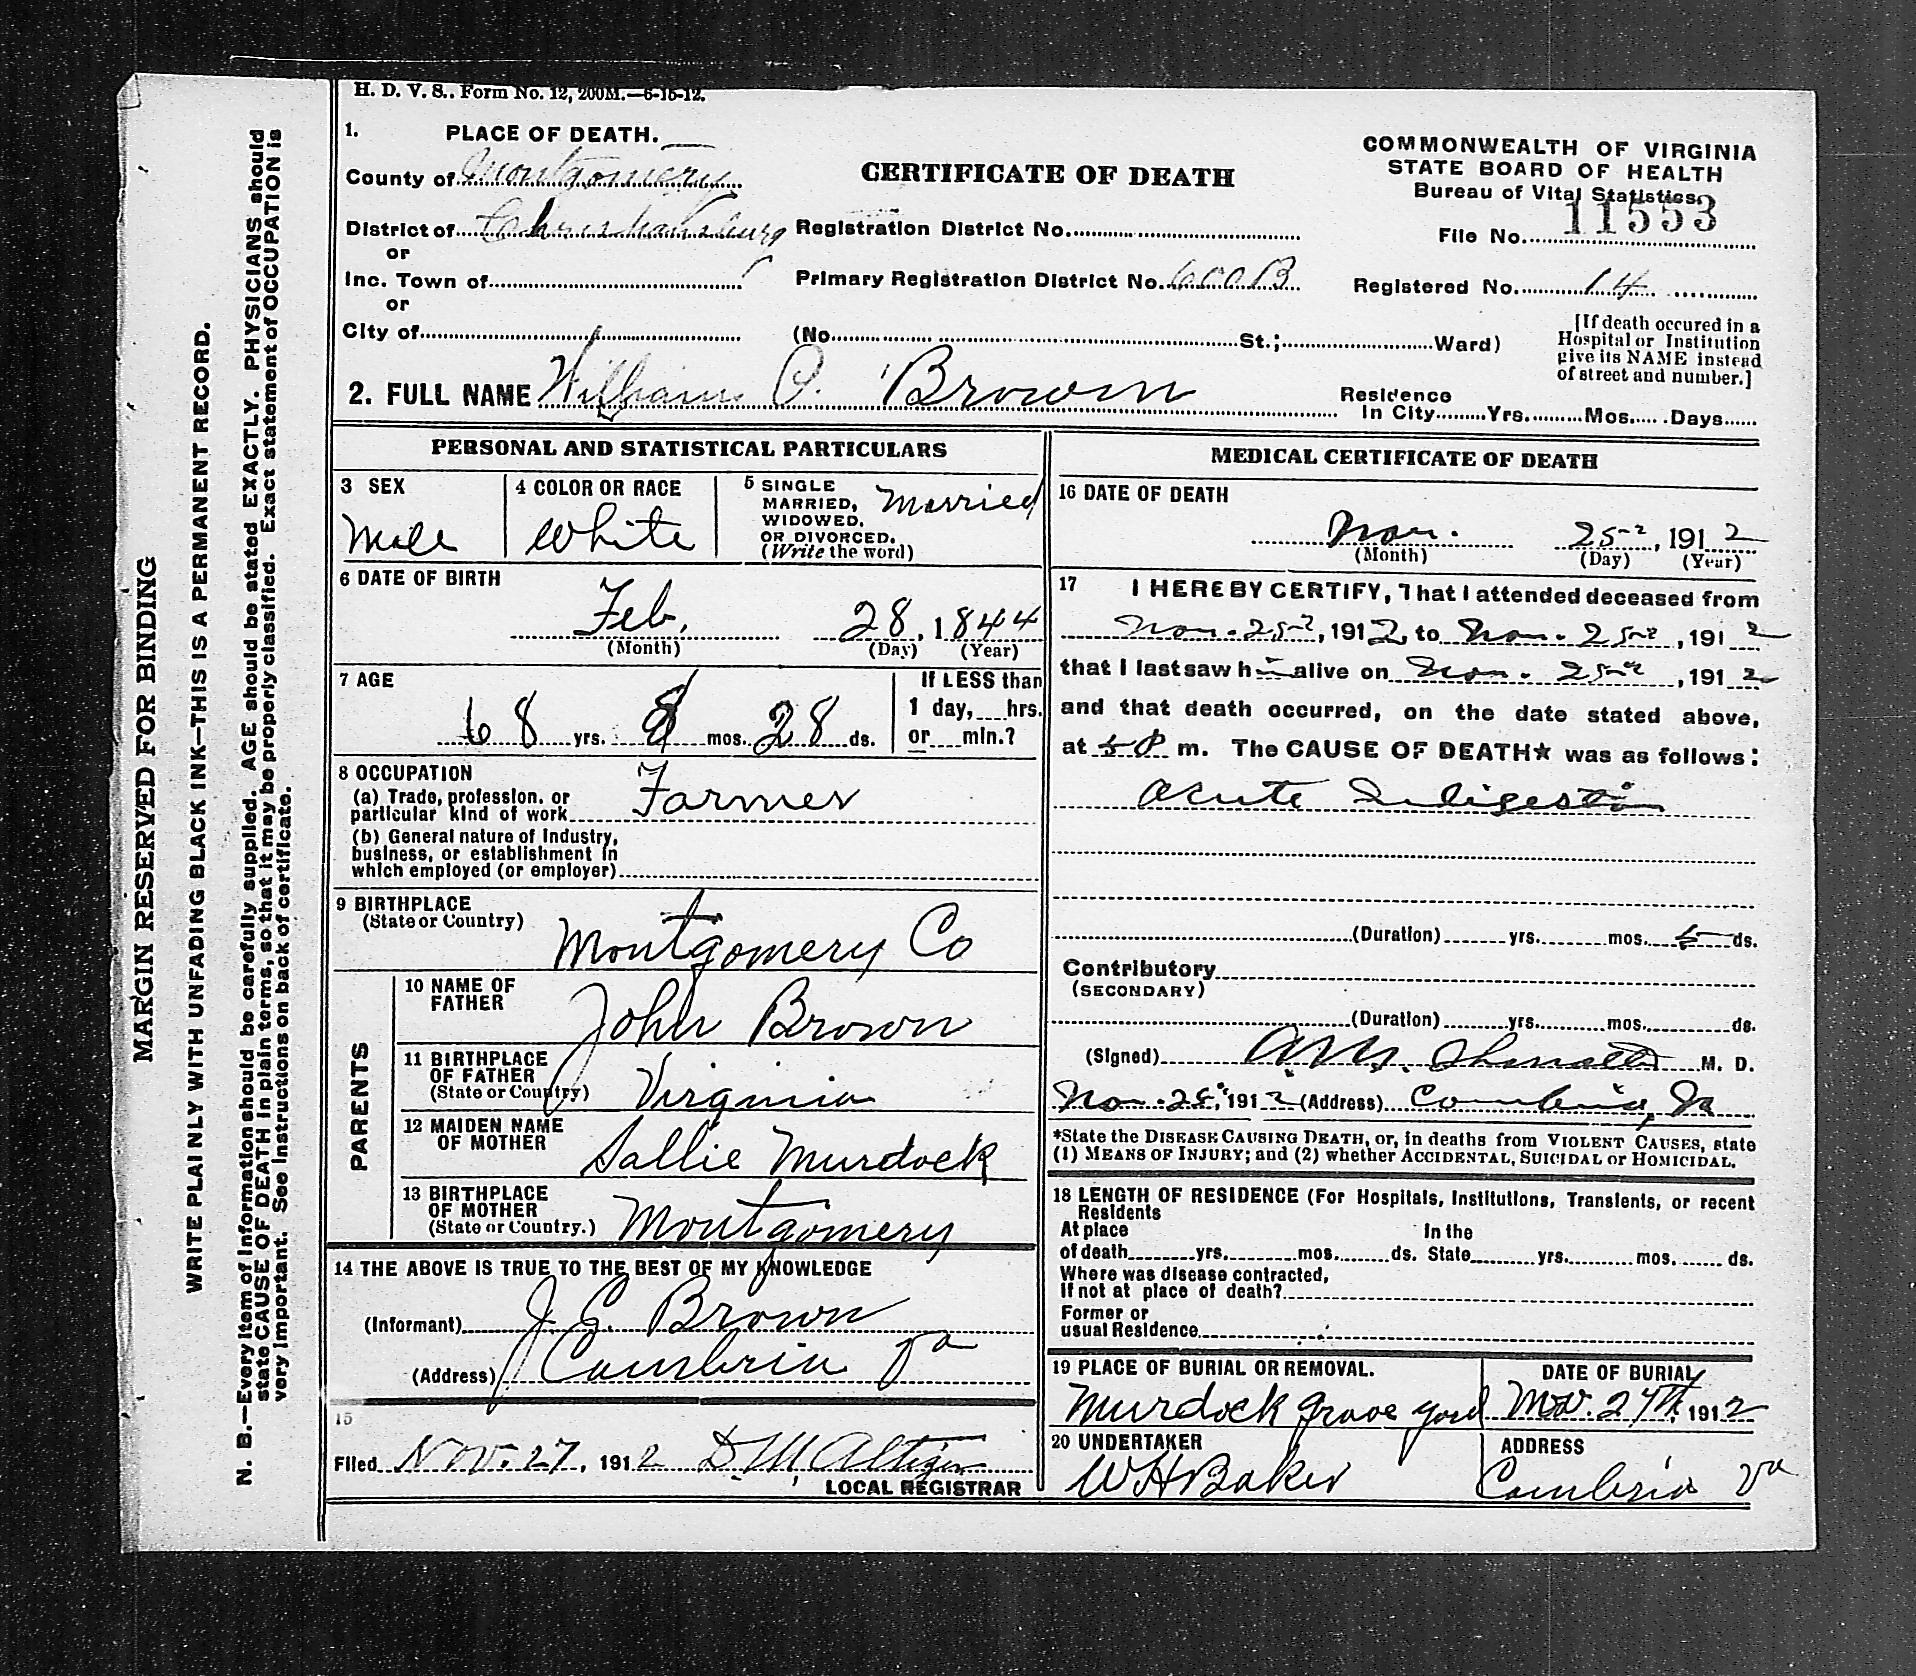 H. D. V. S.. Form No. 12, 200M.—6-15-12.
1. PLACE OF DEATH.
County of Montgomery
District of Christiansburg
or
Inc. Town of
or
City of
CERTIFICATE OF DEATH
Registration District No.
Primary Registration District No. 600B
(No. St.; Ward)
COMMONWEALTH OF VIRGINIA
STATE BOARD OF HEALTH
Bureau of Vital Statistics.
File No. 11553
Registered No. 14
[If death occured in a
Hospital or Institution
give its NAME instead
of street and number.]
2. FULL NAME William P. Brown
Residence
In City Yrs. Mos. Days
PERSONAL AND STATISTICAL PARTICULARS
3 SEX
Male
4 COLOR OR RACE
White
5 SINGLE
MARRIED,
WIDOWED.
OR DIVORCED.
(Write the word)
Married
6 DATE OF BIRTH
Feb. 28, 1844
(Month) (Day) (Year)
7 AGE
68 yrs. 8 mos. 28 ds.
If LESS than
1 day, hrs.
or min.?
8 OCCUPATION
(a) Trade, profession. or
particular kind of work Farmer
(b) General nature of Industry,
business, or establishment in
which employed (or employer)
9 BIRTHPLACE
(State or Country)
Montgomery Co
PARENTS
10 NAME OF
FATHER
John Brown
11 BIRTHPLACE
OF FATHER
(State or Country)
Virginia
12 MAIDEN NAME
OF MOTHER
Sallie Murdock
13 BIRTHPLACE
OF MOTHER
(State or Country.)
Montgomery
14 THE ABOVE IS TRUE TO THE BEST OF MY KNOWLEDGE
(Informant) J. E. Brown
(Address) Cambria Va
15
Filed Nov. 27, 1912 D. M.
LOCAL REGISTRAR
MEDICAL CERTIFICATE OF DEATH
16 DATE OF DEATH
Nov. 25, 1912
(Month) (Day) (Year)
17 I HEREBY CERTIFY, That I attended deceased from
Nov. 25, 1912, to Nov. 25, 1912
that I last saw him alive on Nov. 25, 1912
and that death occurred, on the date stated above,
at 5 P m. The CAUSE OF DEATH* was as follows:
Acute Indigestion
(Duration) yrs. mos. ds.
Contributory
(SECONDARY)
(Duration) yrs. mos. ds.
(Signed) A. M. M. D.
Nov. 25, 1912 (Address) Cambria, Va
*State the DISEASE CAUSING DEATH, or, in deaths from VIOLENT CAUSES, state
(1) MEANS OF INJURY; and (2) whether ACCIDENTAL, SUICIDAL or HOMICIDAL.
18 LENGTH OF RESIDENCE (For Hospitals, Institutions, Transients, or recent
Residents
At place In the
of death yrs. mos. ds. State yrs. mos. ds.
Where was disease contracted,
If not at place of death?
Former or
usual Residence
19 PLACE OF BURIAL OR REMOVAL.
Murdock grave yard
DATE OF BURIAL
Nov. 27th, 1912
20 UNDERTAKER
W H Baker
ADDRESS
Cambria Va
MARGIN RESERVED FOR BINDING
WRITE PLAINLY WITH UNFADING BLACK INK—THIS IS A PERMANENT RECORD.
N. B.—Every item of information should be carefully supplied. AGE should be stated EXACTLY. PHYSICIANS should
state CAUSE OF DEATH in plain terms, so that it may be properly classified. Exact statement of OCCUPATION is
very important. See instructions on back of certificate.